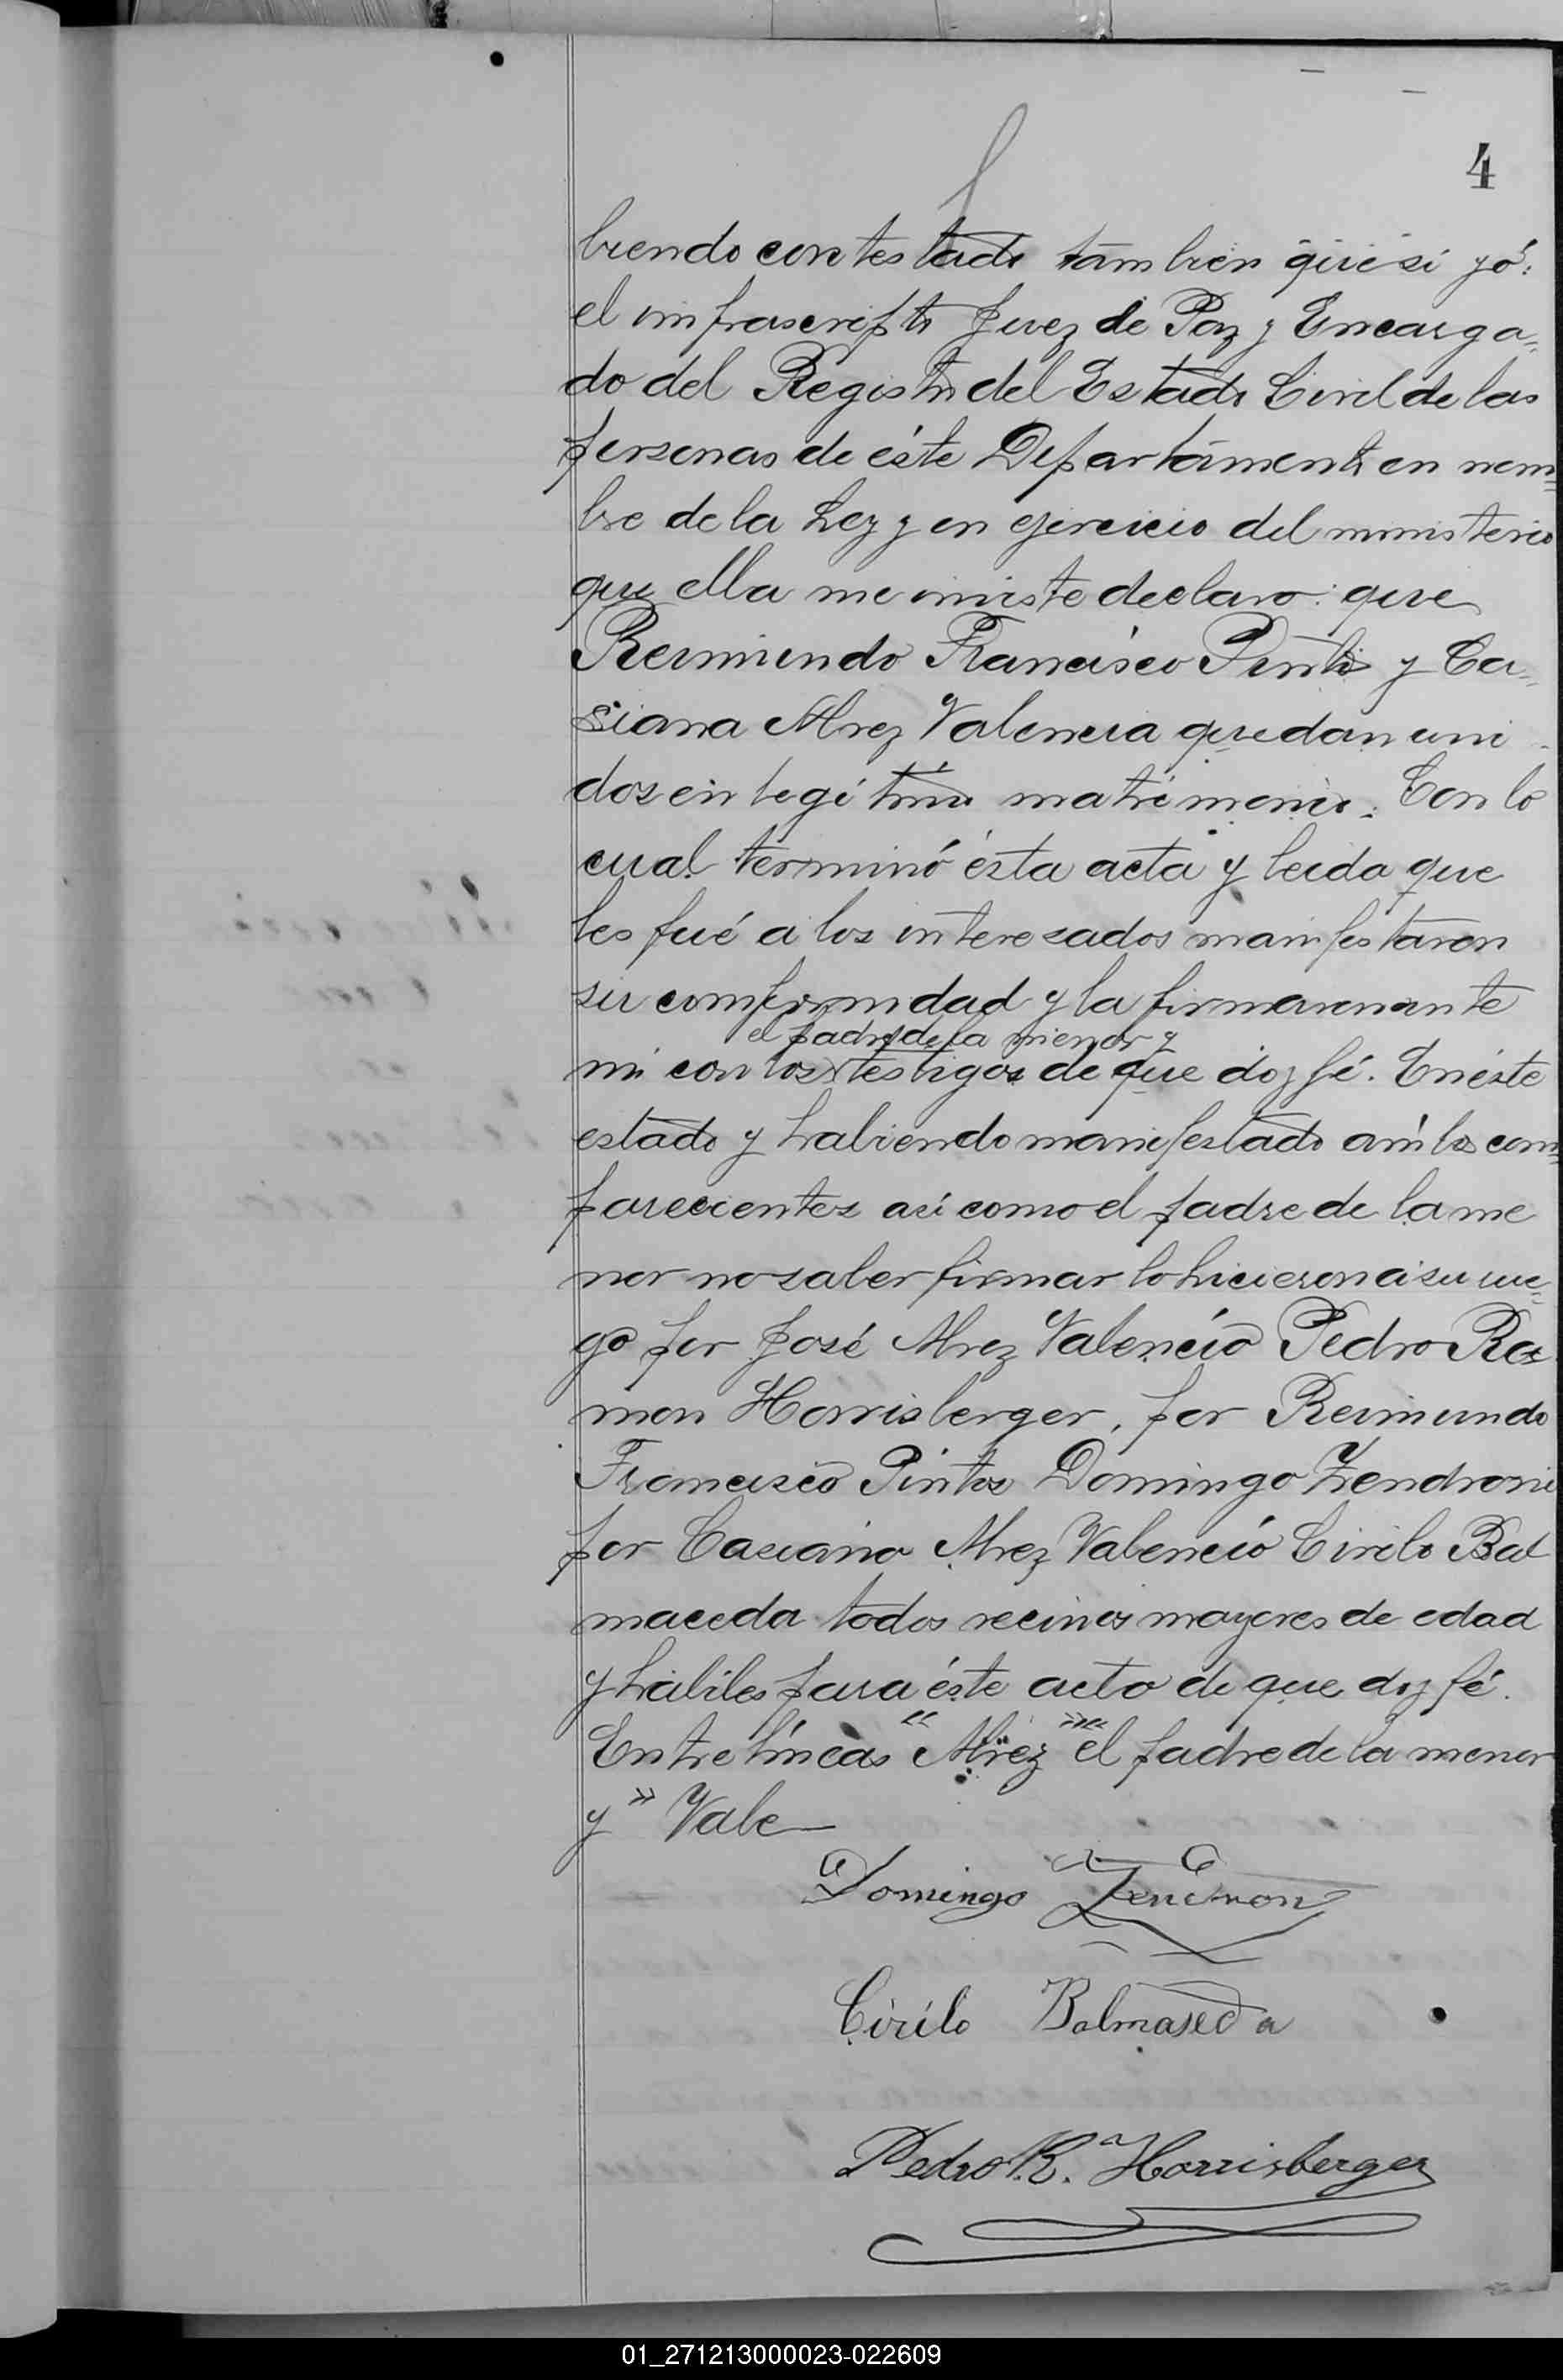 4
biendo contestado tambien que si yó:
el infrascripto Juez de Paz y Encarga=
do del Registro del Estado Civil de las
personas de éste Departamento en nom=
bre de la Ley y en ejercicio del ministerio
que ella me inviste declaro: que
Reimundo Francisco Pinto y Ca=
siana Alvez Valencia quedan uni
dos en legítimo matrimonio. Con lo
cual terminó ésta acta y leida que
les fué a los interesados manifestaron
su conformidad y la firmaron ante
el padre de la menor y
mi con los testigos de que doy fé. En éste
estado y habiendo manifestado ambos com=
parecientes asi como el padre de la me
nor no saber firmar lo hicieron a su rue=
go por José Alvez Valencio Pedro Ra=
mon Horrisberger, por Reimundo
Francisco Pintos Domingo Zendroni
por Casiana Alvez Valencio Cirilo Bal
maceda todos vecinos mayores de edad
y habiles para éste acto de que doy fé.
Entre líneas "Alvez" "el padre de la menor
y" Vale
Domingo Zendron
Cirilo Balmaseda
Pedro R. Horrisberger
01_271213000023-022609